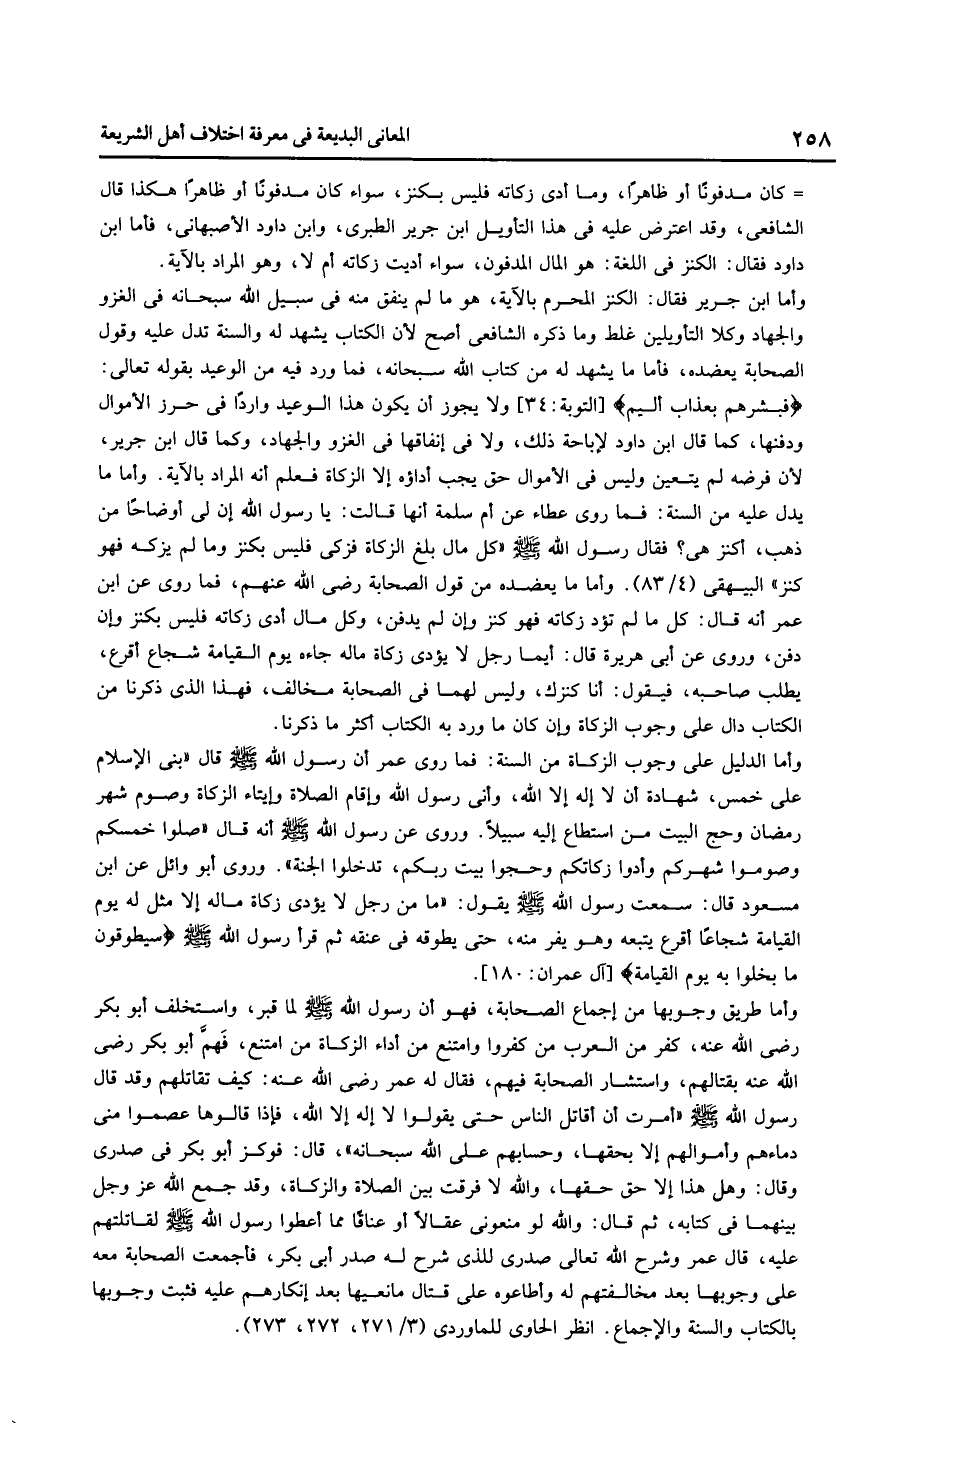 ٢٥٨
المعانى البديعة فى معرفة اختلاف أهل الشريعة
= كان مدفونًا أو ظاهرًا، وما أدى زكاته فليس بكنز، سواء كان مدفونًا أو ظاهرًا هكذا قال
الشافعى، وقد اعترض عليه فى هذا التأويل ابن جرير الطبرى، وابن داود الأصبهانى، فأما ابن
داود فقال: الكنز فى اللغة: هو المال المدفون، سواء أديت زكاته أم لا، وهو المراد بالآية.
وأما ابن جرير فقال: الكنز المحرم بالآية، هو ما لم ينفق منه فى سبيل الله سبحانه فى الغزو
والجهاد وكلا التأويلين غلط وما ذكره الشافعى أصح لأن الكتاب يشهد له والسنة تدل عليه وقول
الصحابة يعضده، فأما ما يشهد له من كتاب الله سبحانه، فما ورد فيه من الوعيد بقوله تعالى:
﴿فبشرهم بعذاب أليم﴾ [التوبة: ٣٤] ولا يجوز أن يكون هذا الوعيد واردًا فى حرز الأموال
ودفنها، كما قال ابن داود لإباحة ذلك، ولا فى إنفاقها فى الغزو والجهاد، وكما قال ابن جرير،
لأن فرضه لم يتعين وليس فى الأموال حق يجب أداؤه إلا الزكاة فعلم أنه المراد بالآية. وأما ما
يدل عليه من السنة: فما روى عطاء عن أم سلمة أنها قالت: يا رسول الله إن لى أوضاحًا من
ذهب، أكنز هى؟ فقال رسول الله ﷺ «كل مال بلغ الزكاة فزكى فليس بكنز وما لم يزكه فهو
كنز» البيهقى (٨٣/٤). وأما ما يعضده من قول الصحابة رضى الله عنهم، فما روى عن ابن
عمر أنه قال: كل ما لم تؤد زكاته فهو كنز وإن لم يدفن، وكل مال أدى زكاته فليس بكنز وإن
دفن، وروى عن أبى هريرة قال: أيما رجل لا يؤدى زكاة ماله جاءه يوم القيامة شجاع أقرع،
يطلب صاحبه، فيقول: أنا كنزك، وليس لهما فى الصحابة مخالف، فهذا الذى ذكرنا من
الكتاب دال على وجوب الزكاة وإن كان ما ورد به الكتاب أكثر ما ذكرنا.
وأما الدليل على وجوب الزكاة من السنة: فما روى عمر أن رسول الله ﷺ قال «بنى الإسلام
على خمس، شهادة أن لا إله إلا الله، وأنى رسول الله وإقام الصلاة وإيتاء الزكاة وصوم شهر
رمضان وحج البيت من استطاع إليه سبيلاً. وروى عن رسول الله ﷺ أنه قال «صلوا خمسكم
وصوموا شهركم وأدوا زكاتكم وحجوا بيت ربكم، تدخلوا الجنة». وروى أبو وائل عن ابن
مسعود قال: سمعت رسول الله ﷺ يقول: «ما من رجل لا يؤدى زكاة ماله إلا مثل له يوم
القيامة شجاعًا أقرع يتبعه وهو يفر منه، حتى يطوقه فى عنقه ثم قرأ رسول الله ﷺ ﴿سيطوقون
ما بخلوا به يوم القيامة﴾ [آل عمران: ١٨٠].
وأما طريق وجوبها من إجماع الصحابة، فهو أن رسول الله ﷺ لما قبر، واستخلف أبو بكر
رضى الله عنه، كفر من العرب من كفروا وامتنع من أداء الزكاة من امتنع، فَهمَّ أبو بكر رضى
الله عنه بقتالهم، واستشار الصحابة فيهم، فقال له عمر رضى الله عنه: كيف تقاتلهم وقد قال
رسول الله ﷺ «أمرت أن أقاتل الناس حتى يقولوا لا إله إلا الله، فإذا قالوها عصموا منى
دماءهم وأموالهم إلا بحقها، وحسابهم على الله سبحانه»، قال: فوكز أبو بكر فى صدرى
وقال: وهل هذا إلا حق حقها، والله لا فرقت بين الصلاة والزكاة، وقد جمع الله عز وجل
بينهما فى كتابه، ثم قال: والله لو منعونى عقالاً أو عناقًا مما أعطوا رسول الله ﷺ لقاتلتهم
عليه، قال عمر وشرح الله تعالى صدرى للذى شرح له صدر أبى بكر، فأجمعت الصحابة معه
على وجوبها بعد مخالفتهم له وأطاعوه على قتال مانعيها بعد إنكارهم عليه فثبت وجوبها
بالكتاب والسنة والإجماع. انظر الحاوى للماوردى (٢٧١/٣، ٢٧٢، ٢٧٣).